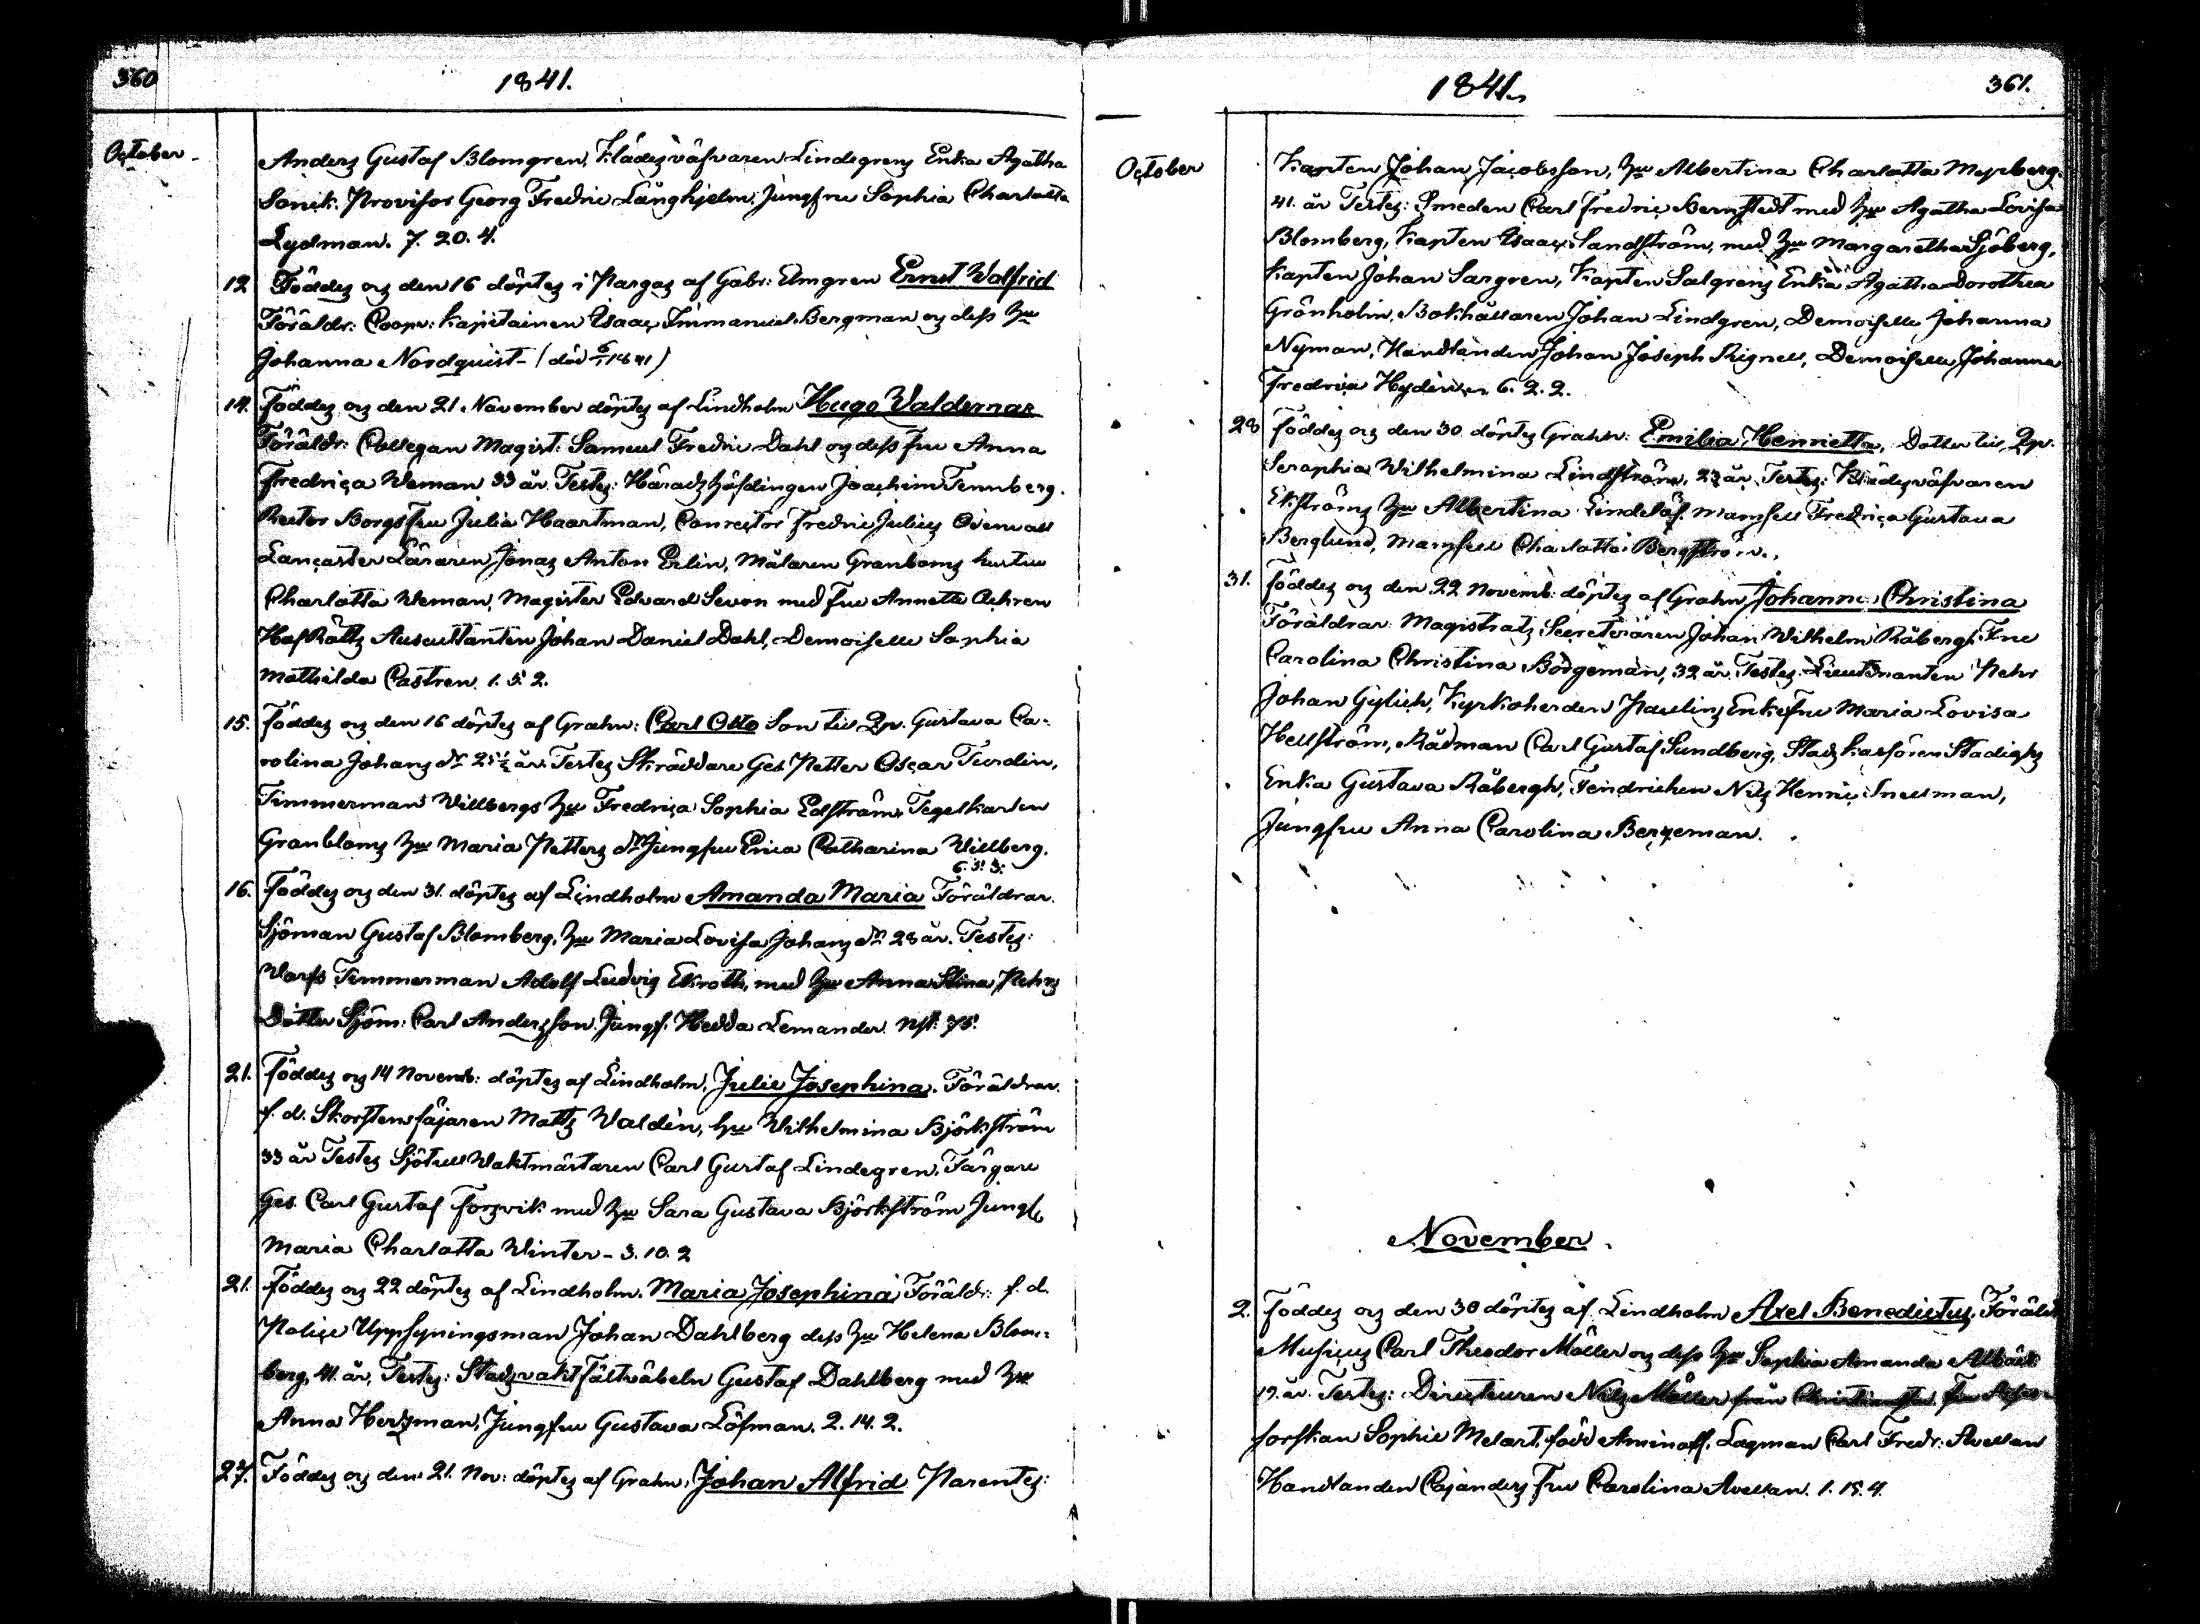 360
1841.
October
Anders Gustaf Blomgren, Klädesväfvaren Lindegrens Enka Agatha
Sonck. Provisor Georg Fredric Långhjelm, Jungfru Sophia Charlotta
Lydman. 7. 20. 4.
12 Föddes og den 16 döptes i Pargas af Gabr: Elmgren Ernst Walfrid
Föräldr: Coopv: Kapitainen Isaac Immanuel Bergman og dess hu
Johanna Nordquist - (död 1841)
14. Föddes og den 21 November döptes af Lindholm Hugo Valdemar
Föräldr: Collegan Magist: Samuel Fredric Dahl og dess fru Anna
Fredrica Weman 33 år. Testes: Häradshöfdingen Joachim Tennberg.
Rector Borgs fru Julia Haartman, Conrector Fredric Julius Odenwall
Lancaster Läraren Jonas Anton Erlin, Målaren Granboms hustru
Charlotta Weman, Magister Edvard Sevon med fru Annette Aehren
HofRätts Auscultanten Johan Daniel Dahl, Demoiselle Sophia
Mathilda Castren. 1. 5. 2.
15. Föddes og den 16 döptes af Grahn: Carl Otto Son till Qp. Gustava Ca-
rolina Johans dr 25 1/2 år. Testes Skräddare Ges. Petter Oscar Turdin,
Timmerman Willbergs hu Fredrica Sophia Edström, Tegelkarlen
Granbloms hu Maria Petters dr Jungfru Erica Catharina Willberg.
6. 3. 3.
16. Föddes og den 31. döptes af Lindholm Amanda Maria Föräldrar.
Sjöman Gustaf Blomberg, hu Maria Lovisa Johans dr 28 år. Testes:
Warfs Timmerman Adolf Ludvig Ekroth, med hu Anna Stina Pehrs
Dotter Sjöm: Carl Andersson. Jungf. Hedda Lemander. Nst. 75.
21. Föddes og 14 Novemb: döptes af Lindholm, Julie Josephina. Föräldrar.
f. d. Skorstensfejaren Matts Waldèn, hu Wilhelmina Björkström
33 år Testes Sjötull Waktmästaren Carl Gustaf Lindegren, Färgare
Ges. Carl Gustaf Forsvik med hu Sara Gustava Björkström Jungf.
Maria Charlotta Winter - 3. 10. 2
21. Föddes og 22 döptes af Lindholm. Maria Josephina Föräldr: f. d.
Police Uppsyningsman Johan Dahlberg dess hu Helena Blom-
berg, 41. år, Testes: Stadsvakt Fältväbeln Gustaf Dahlberg med hu
Anna Hertzman, Jungfru Gustava Löfman. 2. 14. 2.
27. Föddes og den 21. Nov: döptes af Grahn, Johan Alfrid Parentes:
1841.
361.
October
Kapten Johan Jacobsson, hu Albertina Charlotta Myrberg.
41. år Testes: Smeden Carl Fredric Bernstedt med hu Agatha Lovisa
Blomberg, Kapten Isaac Sandström, med hu Margaretha Sjöberg,
Kapten Johan Sargren, Kapten Salgrens Enka Agatha Dorothea
Grönholm, Bokhållaren Johan Lindgren, Demoiselle Johanna
Nyman, Handlanden Johan Joseph Rignell, Demoiselle Johanna
Fredrica Hydèn. 6. 2. 2.
28 Föddes og den 30 döptes Grahn: Emilia Henrietta, Dotter till Qp.
Seraphia Wilhelmina Lindström, 23 år. Testes: Klädesväfvaren
Ekströms hu Albertina Lindelöf. Mamsell Fredrica Gustava
Berglund, Mamsell Charlotta Bergström.
31. Föddes og den 22 Novemb: döptes af Grahn Johanna Christina
Föräldrar Magistrats Secreteraren Johan Wilhelm Råbergh. Fru
Carolina Christina Borgeman, 32 år. Testes Lieutenanten Pehr
Johan Gylich, Kyrkoherden Paulins Enkefru Maria Lovisa
Hellström, Rådman Carl Gustaf Sundberg, Stads kassören Stadighs
Enka Gustava Råbergh, Fendrichen Nils Henric Snellman,
Jungfru Anna Carolina Bergeman.
November.
2. Föddes og den 30 döptes af Lindholm Axel Benedictus, Föräld
Musicus Carl Theodor Möller og dess hu Sophia Amanda
19. år. Testes: Directeuren Nils Möller från Christinestad. Fru Asses-
sorskan Sophie Melart, född Aminoff. Lagman Carl Fredr: Avellan
Handlanden Cajanders Fru Carolina Avellan. 1. 15. 4.